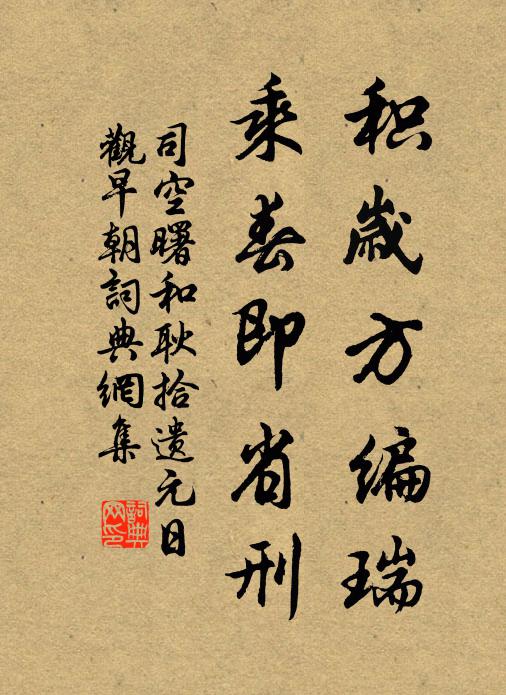 积岁方编瑞
乘春即省刑
司空曙和耿拾遗元日
觀早朝詞典網集
詞典
网印